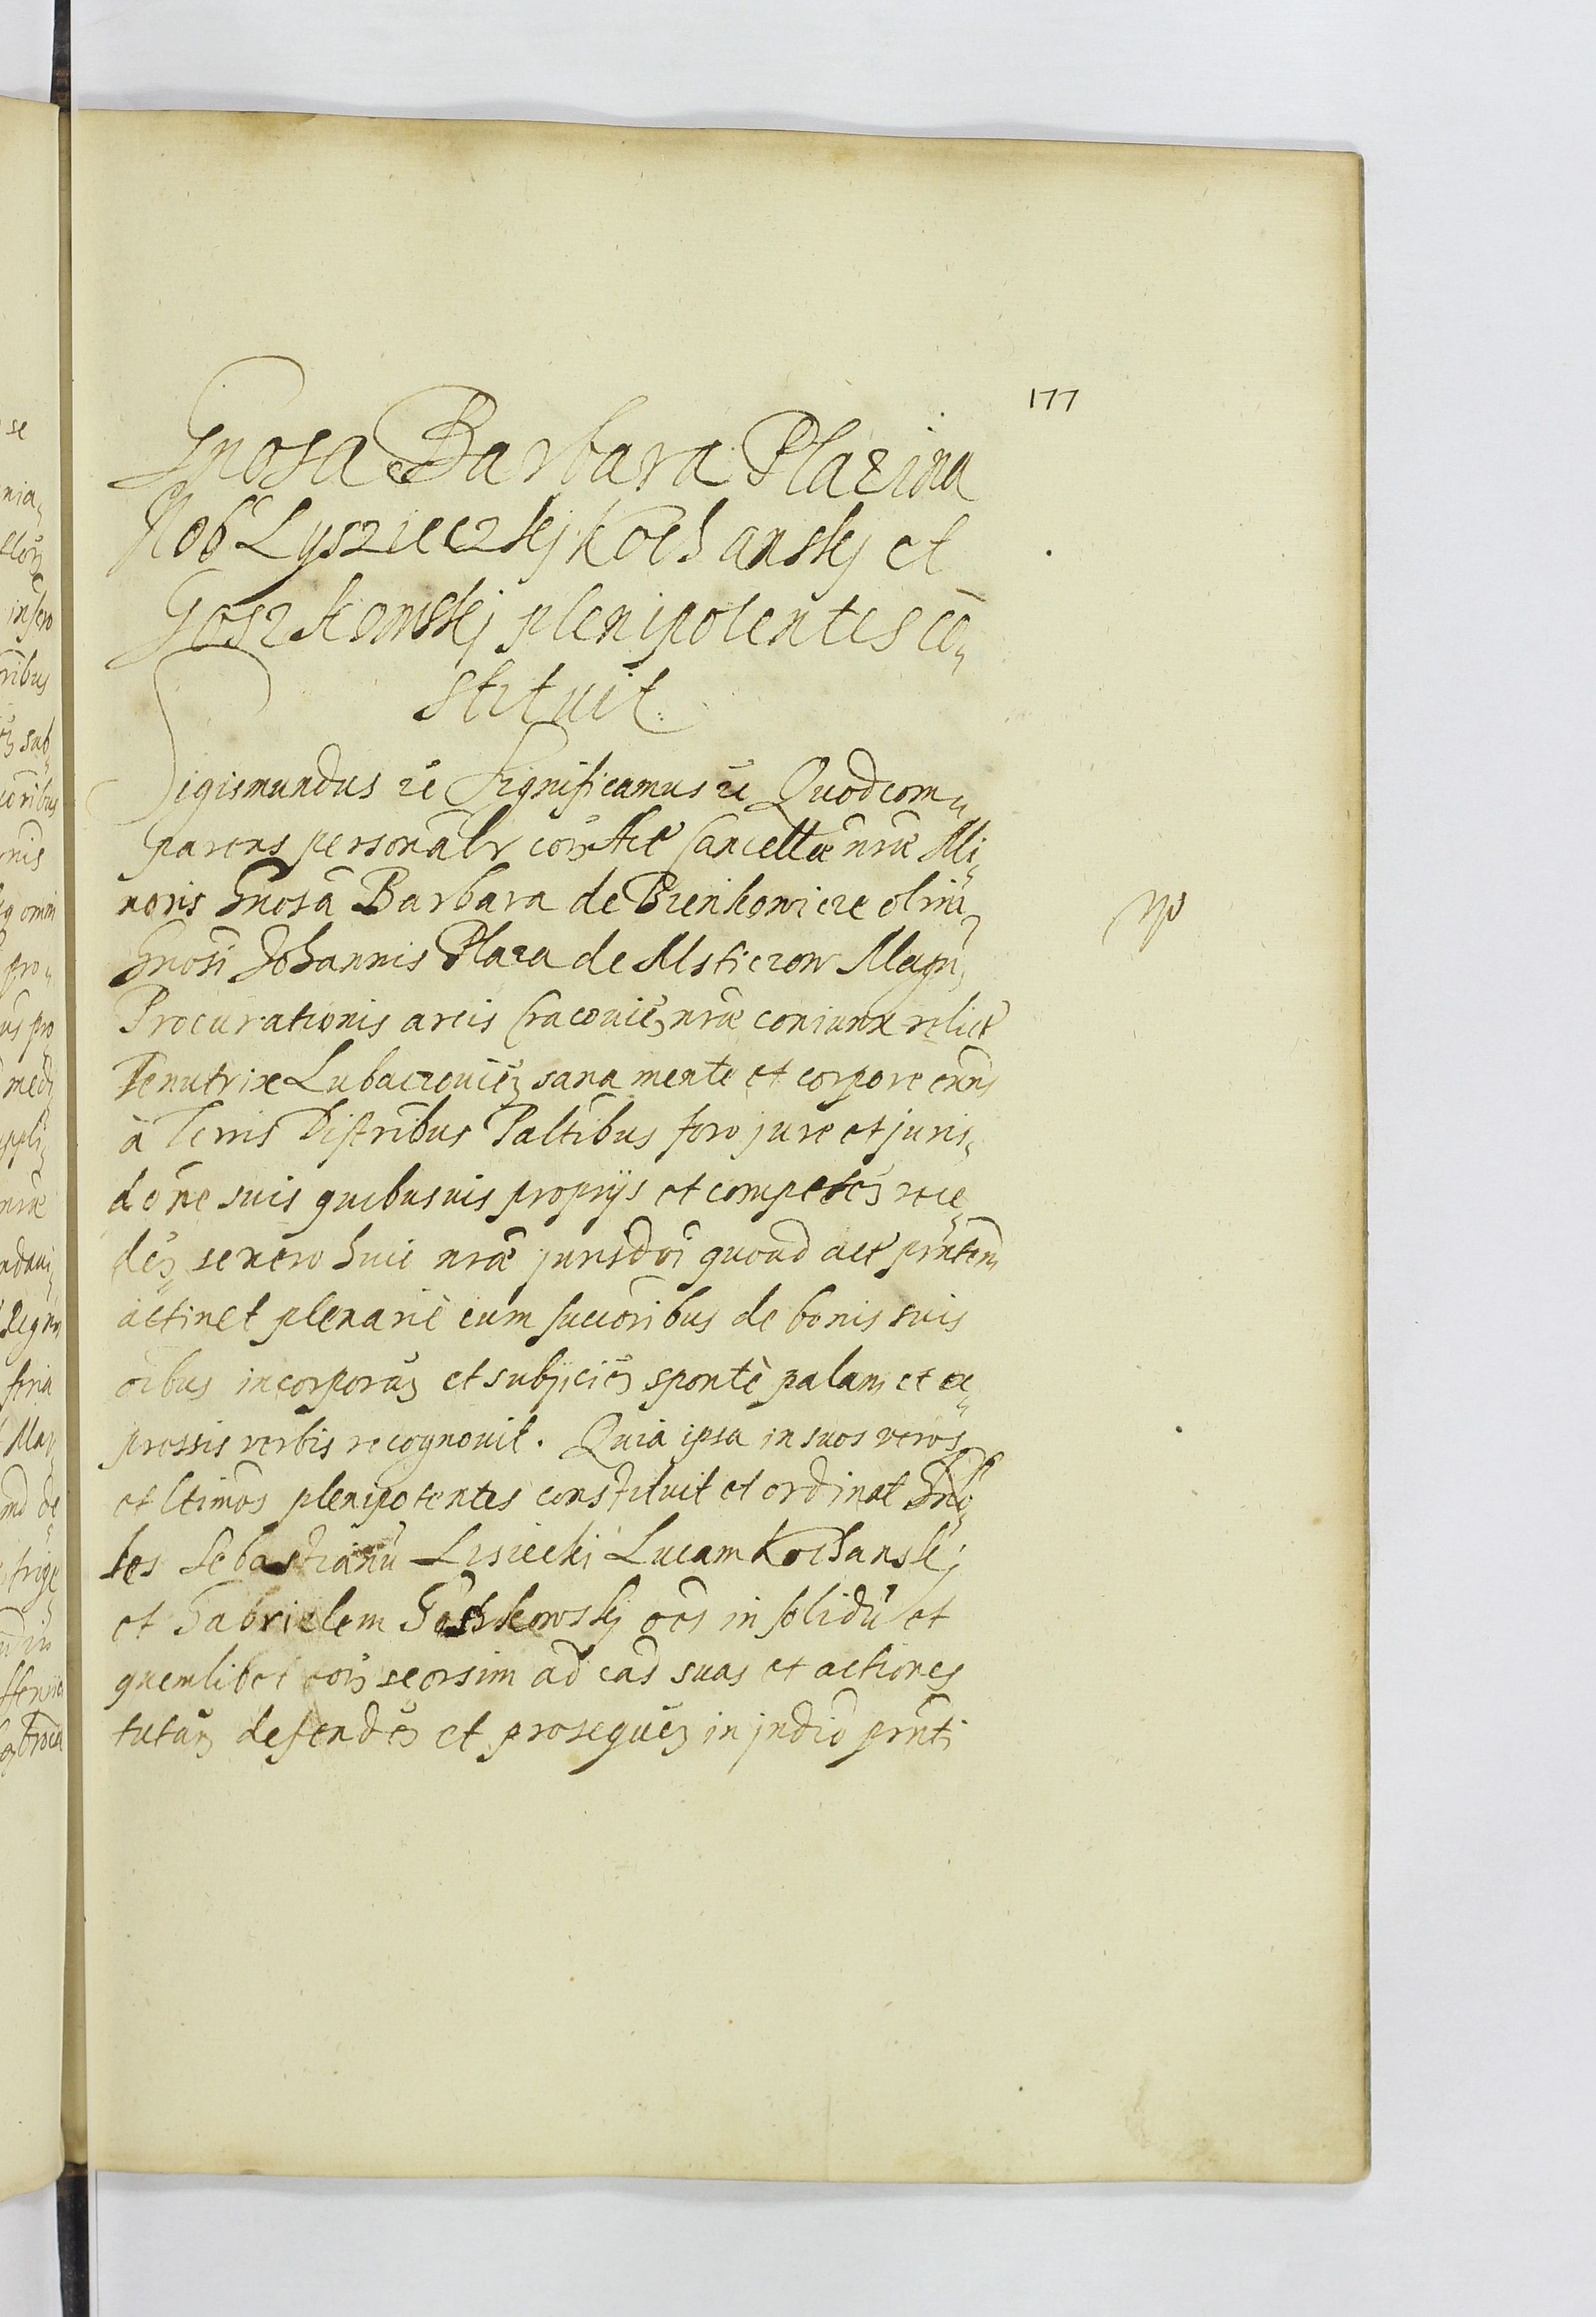 177
Gnosa Barbara Plazina
Nob Lyszieczkÿ Kochanskÿ et
Goszkowskÿ plenipotentes cō„
stituit.
Sigismundus &c Significamus &c Quod com„
parens personalr̄ corā Actꝭ Cancellæ nr̄æ Mi„
noris Gnosa Barbara de Bienkowicze olim
Gnosi Johannis Plaza de Msticzow Magn̄
Procurationis arcis Cracovieñ nr̄æ coniunx relictꝭ
Tenutrix Lubaczovieñ sana mente et corpore exn̄s
à Terris Distribus Palt̄ibus foro jure et juris„
dōne suis quibusuis proprÿs et competeñ rece„
deñ se vero huic nr̄æ jurisdōi quoad act̄ prn̄tem
attinet plenariè cum succōribus de bonis suis
oībus incorporañ et subÿcieñ spontè palam et ex„
pressis verbis recognovit. Quia ipsa in suos veros
et ltimōs plenipotentes constituit et ordinat Gnō„
les Sebastianū Lisiecki Lucam Kochanskÿ
et Gabrielem Goszkowskÿ oēs in solidū et
quemlibet eorū seorsim ad cas̄ suas et actiones
tutañ defendeñ et prosequeñ in judīo prn̄ti